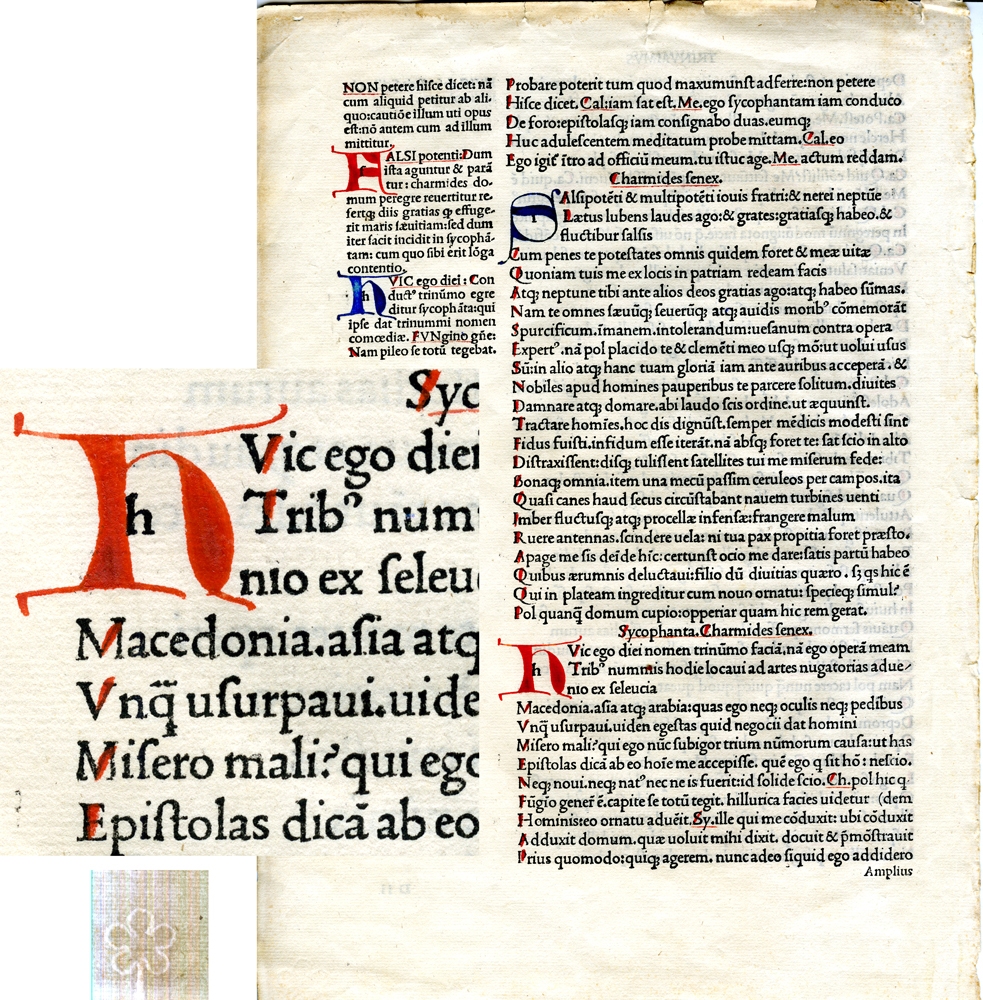 NON petere hisce dicet: nā
cum aliquid petitur ab ali-
quo:cautiōe illum uti opus
est:nō autem cum ad illum
mittitur.
FALSI potenti:Dum
ista aguntur & parā
tur: charmides do-
mum peregre reuertitur re-
fertqȝ diis gratias ꝙ effuge-
rit maris sæuitiam:sed dum
iter facit incidit in sycophā-
tam: cum quo sibi erit lōga
contentio.
hVIC ego diei: Con
ductꝰ trinūmo egre
ditur sycophāta:qui
ipse dat trinummi nomen
comœdiæ. FVNgino gñe:
Nam pileo se totū tegebat.
Probare poterit tum quod maxumunst adferre:non petere
Hisce dicet. Cal:iam sat est. Me.ego sycophantam iam conduco
De foro:epistolasqȝ iam consignabo duas.eumqȝ
Huc adulescentem meditatum probe mittam. Cal.eo
Ego igit̄ ītro ad officiū meum.tu istuc age. Me. actum reddam.
Charmides senex.
SAlsipotēti & multipotēti iouis fratri:& nerei neptūe
Lætus lubens laudes ago:& grates:gratiasqȝ habeo.&
fluctibur salsis
Cum penes te potestates omnis quidem foret & meæ uitæ
Quoniam tuis me ex locis in patriam redeam facis
Atqȝ neptune tibi ante alios deos gratias ago:atqȝ habeo sūmas.
Nam te omnes sæuūqȝ seuerūqȝ atqȝ auidis moribꝰ cōmemorāt
Spurcificum.īmanem.intolerandum:uesanum contra opera
Expertꝰ.nā pol placido te & clemēti meo usqȝ mō:ut uolui usus
Sū:in alio atqȝ hanc tuam gloriā iam ante auribus acceperā.&
Nobiles apud homines pauperibus te parcere solitum.diuites
Damnare atqȝ domare.abi laudo scis ordine.ut æquunst.
Tractare homīes.hoc dis dignūst.semper mēdicis modesti sint
Fidus fuisti.infidum esse iterāt.nā absqȝ foret te: sat scio in alto
Distraxissent:disqȝ tulissent satellites tui me miserum fede:
Bonaqȝ omnia.item una mecū passim ceruleos per campos.ita
Quasi canes haud secus circūstabant nauem turbines uenti
Imber fluctusqȝ atqȝ procellæ infensæ:frangere malum
Ruere antennas.scindere uela: ni tua pax propitia foret præsto.
Apage me sis deīde hīc: certunst ocio me dare:satis partū habeo
Quibus ærumnis deluctaui:filio dū diuitias quæro. sȝ qs hic ē
Qui in plateam ingreditur cum nouo ornatu: specieqȝ simul?
Pol quanq̄ domum cupio:opperiar quam hic rem gerat.
Sycophanta.Charmides senex.
hVic ego diei nomen trinūmo faciā.nā ego operā meam
Tribꝰ nummis hodie locaui ad artes nugatorias adue/
nio ex seleucia
Macedonia.asia atqȝ arabia:quas ego neqȝ oculis neqȝ pedibus
Vnq̄ usurpaui.uiden egestas quid negocii dat homini
Misero mali?qui ego nūc subigor trium nūmorum causa:ut has
Epistolas dicā ab eo hoīe me accepisse. quē ego q sit hō: nescio.
Neqȝ noui.neqȝ natꝰ nec ne is fuerit:id solide scio. Ch.pol hic q
Fūgio generē ē.capite se totū tegit. hillurica facies uidetur (dem
Hominis:eo ornatu aduēit.Sy.ille qui me cōduxit: ubi cōduxit
Adduxit domum.quæ uoluit mihi dixit. docuit & p̄mōstrauit
Prius quomodo:quiqȝ agerem. nunc adeo siquid ego addidero
Amplius
Syc
hVic ego diei
Tribꝰ num
nio ex seleu
Macedonia.asia atq
Vnq̄ usurpaui.uide
Misero mali?qui ego
Epistolas dicā ab eo